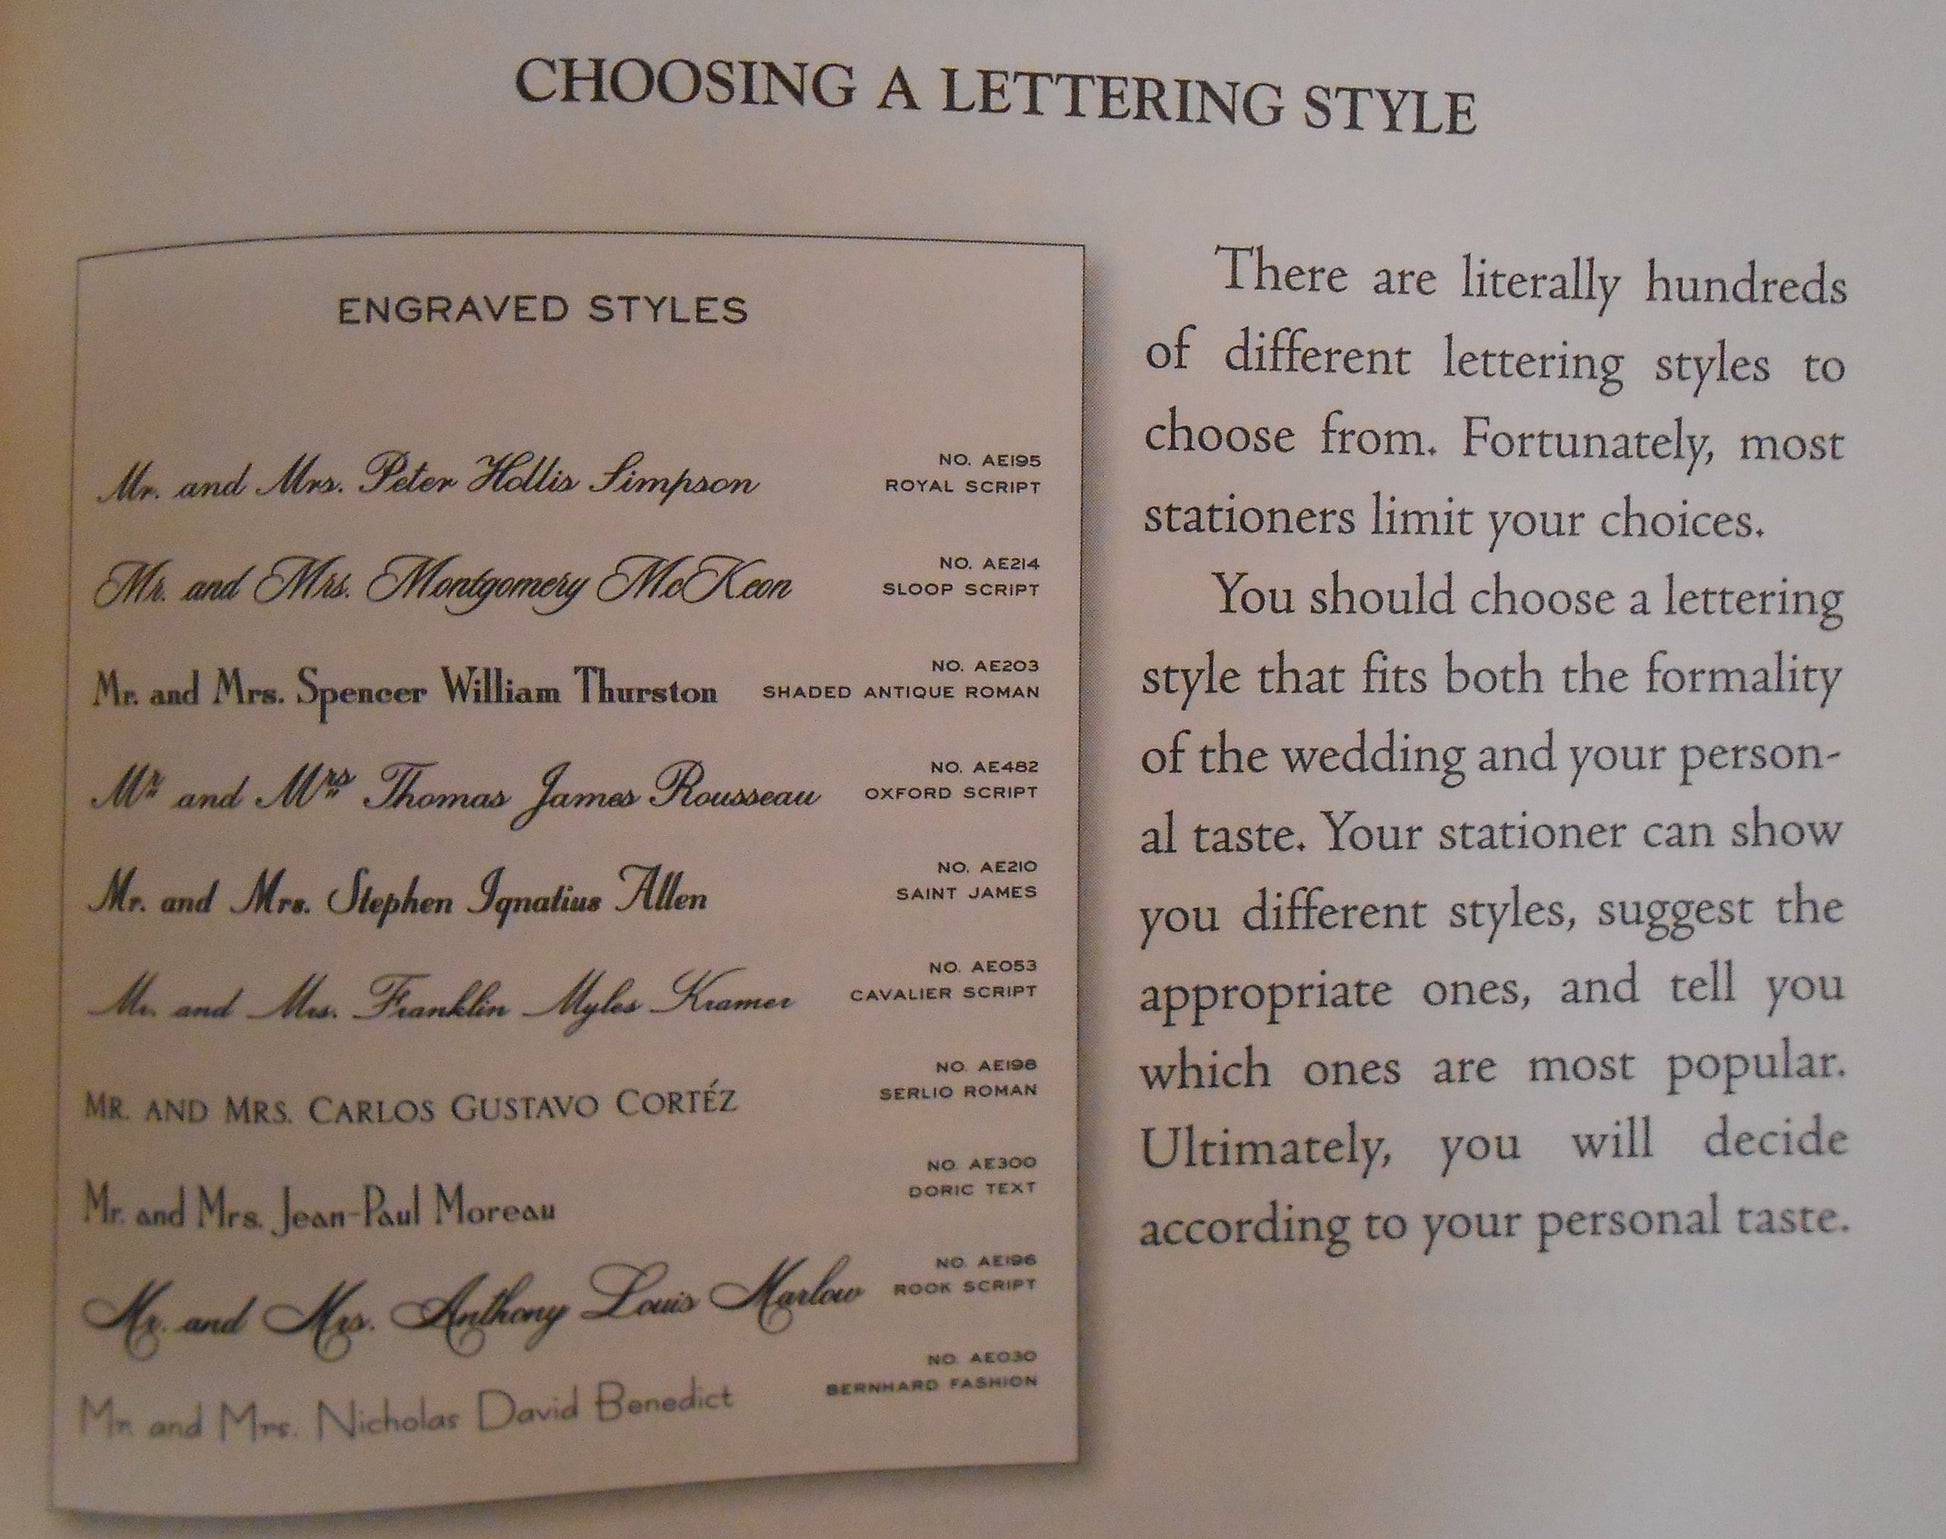 CHOOSING A LETTERING STYLE
ENGRAVED STYLES
Mr. and Mrs. Peter Hollis Simpson
NO. AE195
ROYAL SCRIPT
Mr. and Mrs. Montgomery McKeon
NO. AE214
SLOOP SCRIPT
Mr. and Mrs. Spencer William Thurston
NO. AE203
SHADED ANTIQUE ROMAN
Mr. and Mrs. Thomas James Rousseau
NO. AE482
OXFORD SCRIPT
Mr. and Mrs. Stephen Ignatius Allen
NO. AE210
SAINT JAMES
Mr. and Mrs. Franklin Myles Kramer
NO. AE053
CAVALIER SCRIPT
MR. AND MRS. CARLOS GUSTAVO CORTÉZ
NO. AE198
SERLIO ROMAN
Mr. and Mrs. Jean-Paul Moreau
NO. AE300
DORIC TEXT
Mr. and Mrs. Anthony Louis Marlow
NO. AE196
ROOK SCRIPT
Mr. and Mrs. Nicholas David Benedict
NO. AE030
BERNHARD FASHION
There are literally hundreds
of different lettering styles to
choose from. Fortunately, most
stationers limit your choices.
You should choose a lettering
style that fits both the formality
of the wedding and your person-
al taste. Your stationer can show
you different styles, suggest the
appropriate ones, and tell you
which ones are most popular.
Ultimately, you will decide
according to your personal taste.